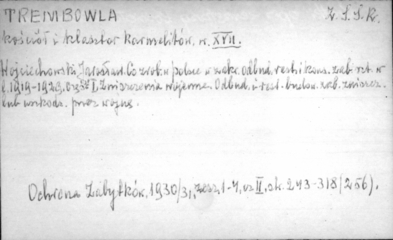 TREMBOWLA Z.S.S.R.
Kościół i klasztor karmelitów, w. XVII.
Wojciechowski, Jarosław. Co zrob. w Polsce w zakr. odbud. rest. i kons. zab. szt. w
l. 1919-1929. Część I, Zniszczenia wojenne. Odbud. i rest. budow. zab. zniszcz.
lub uszkodz. przez wojnę.
Ochrona Zabytków, 1930/31, zesz. 1-4, cz. II, sk. 243-318 (256).